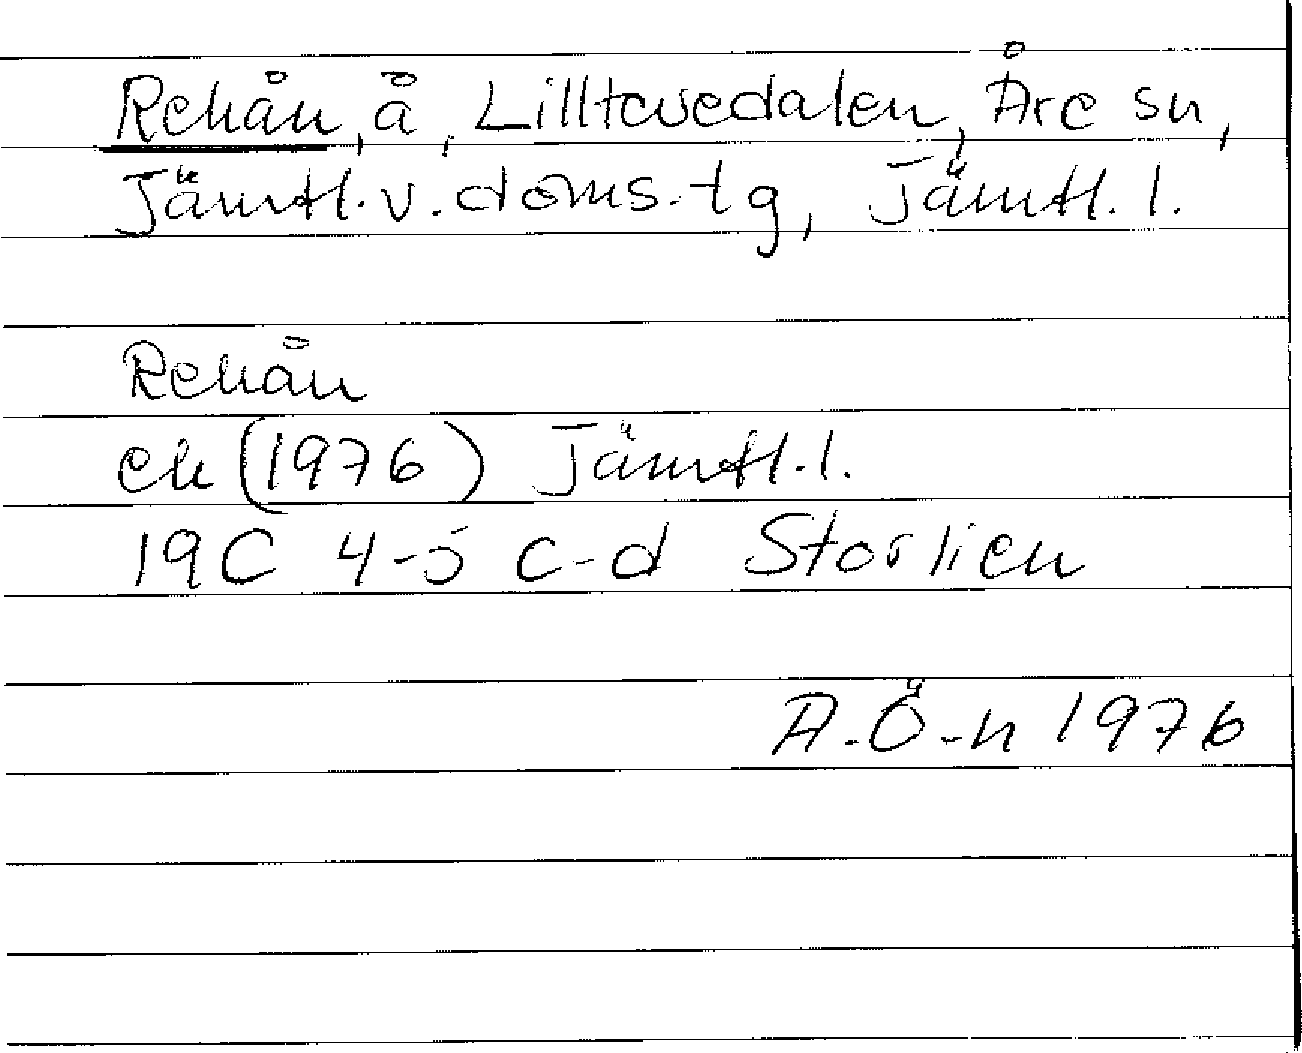 Rekån, å, Lilltevedalen, Åre sn,
Jämtl. v. doms. tg, Jämtl. l.
Rekån
ek (1976) Jämtl. l.
19C 4-5 c-d Storlien
A. Ö-n 1976